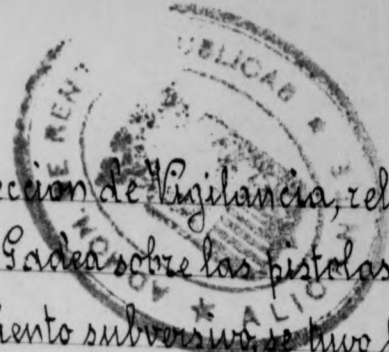 ADMON. DE RENT PUBLICAS
ALICANTE
eccion de Vigilancia, rel
Gadea sobre las pistolas
iento subversivo, se tuvo